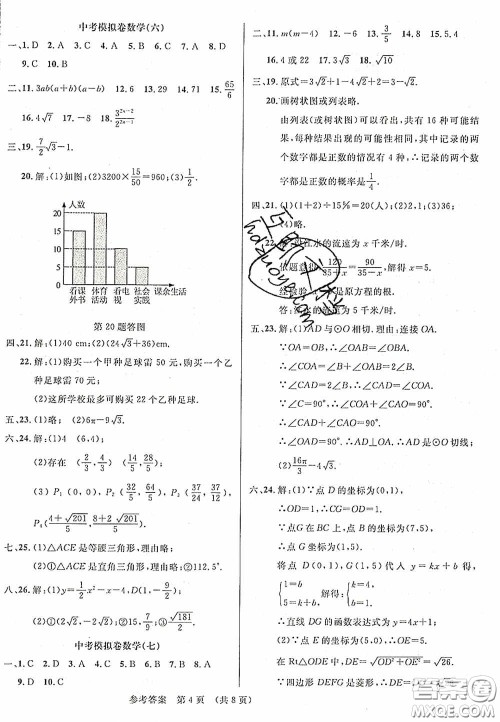 中考模拟卷数学(六)
一、1. D 2. A 3. C 4. A 5. C 6. D 7. A 8. D
9. C 10. B
二、11. 3ab(a+b)(a-b) 12. 6 13. 29 14. 71 15. 65/6
16. 4√7 17. -8 18. 3^(2n-2)/2^(2n-3)
三、19. 7/2√3-1.
20. 解:(1)如图;(2)3200×15/50=960;(3)
人数
20
15
10
5
看课外书 体育活动 看电视 社会实践 课余生活
第20题答图
四、21. 解:(1)40 cm;(2)(24√3+36)cm.
22. 解:(1)购买一个甲种足球需50元,购买一个乙
种足球需70元;
(2)这所学校最多可购买22个乙种足球.
五、23. (1)略; (2)6π-9√3.
六、24. 解:(1)4 (6,4);
(2)存在 (2/3,4/3) (14/5,28/5)
(3)P₁(0,5) P₂(16/5,33/5) P₃(37/12,37/12)
P₄(4+√201/5,8+2√201/5)
七、25. (1)△ACE是等腰三角形,理由略;
(2)①△ACE是直角三角形,理由略;②112.5°.
八、26. (1)y=1/2x²-x-4,D(1,-9/2)
(2)
中考模拟卷数学(七)
一、1. C 2. B 3. D 4. B 5. A 6. D 7. C 8. A
9. D 10. C
二、11. m(m-4) 12. 15. √3
16. 4或22 17. 18. √119
三、19. 原式=3√2+1-2√2-1=√2.
20. 画树状图或列表略.
由列表(或树状图)可以看出,共有16种可能结
果,每种结果出现的可能性相同,其中记录的两个
数字都是正数的情况有4种,∴记录的两个
数字都是正数的概率是1/4.
四、21. (1)(1+2)÷15%=20(人);(2)(3)36;
(4)略.
22. 水的流速为x千米/时.
依题意 120/35+x=90/35-x,解得x=5.
经检验 是原方程的根.
流速为5千米/时.
五、23. 解:(1)AD与⊙O相切,理由:连接OA.
∵OA=OB,∴∠OAB=∠OBA.
∴∠COA=∠OAB+∠OBA=2∠B.
∵∠CAD=2∠B,∴∠COA=∠CAD.
∵∠C=90°,∴∠COA+∠CAO=90°.
∴∠CAD+∠CAO=90°.
∴∠OAD=90°.∴AD⊥OA.∴AD是⊙O切线;
(2)16π/3-4√3.
六、24. 解:(1)∵点D的坐标为(0,1),
∴OD=1,∴CG=OD=1.
∵点G在BC上,点B的坐标为(7,5),
∴点G的坐标为(1,5).
将点D、点G的坐标代入y=kx+b得
1=b,
5=k+b,
解得 k=4,
b=1,
∴直线DG的函数表达式为y=4x+1;
(2)∵点E的坐标为(5,0),∴OE=5.
在Rt△ODE中,DE=√1²+5²=√26.
∵四边形DEFG是菱形,∴DG=DE=√26.
参考答案 第4页 (共8页)